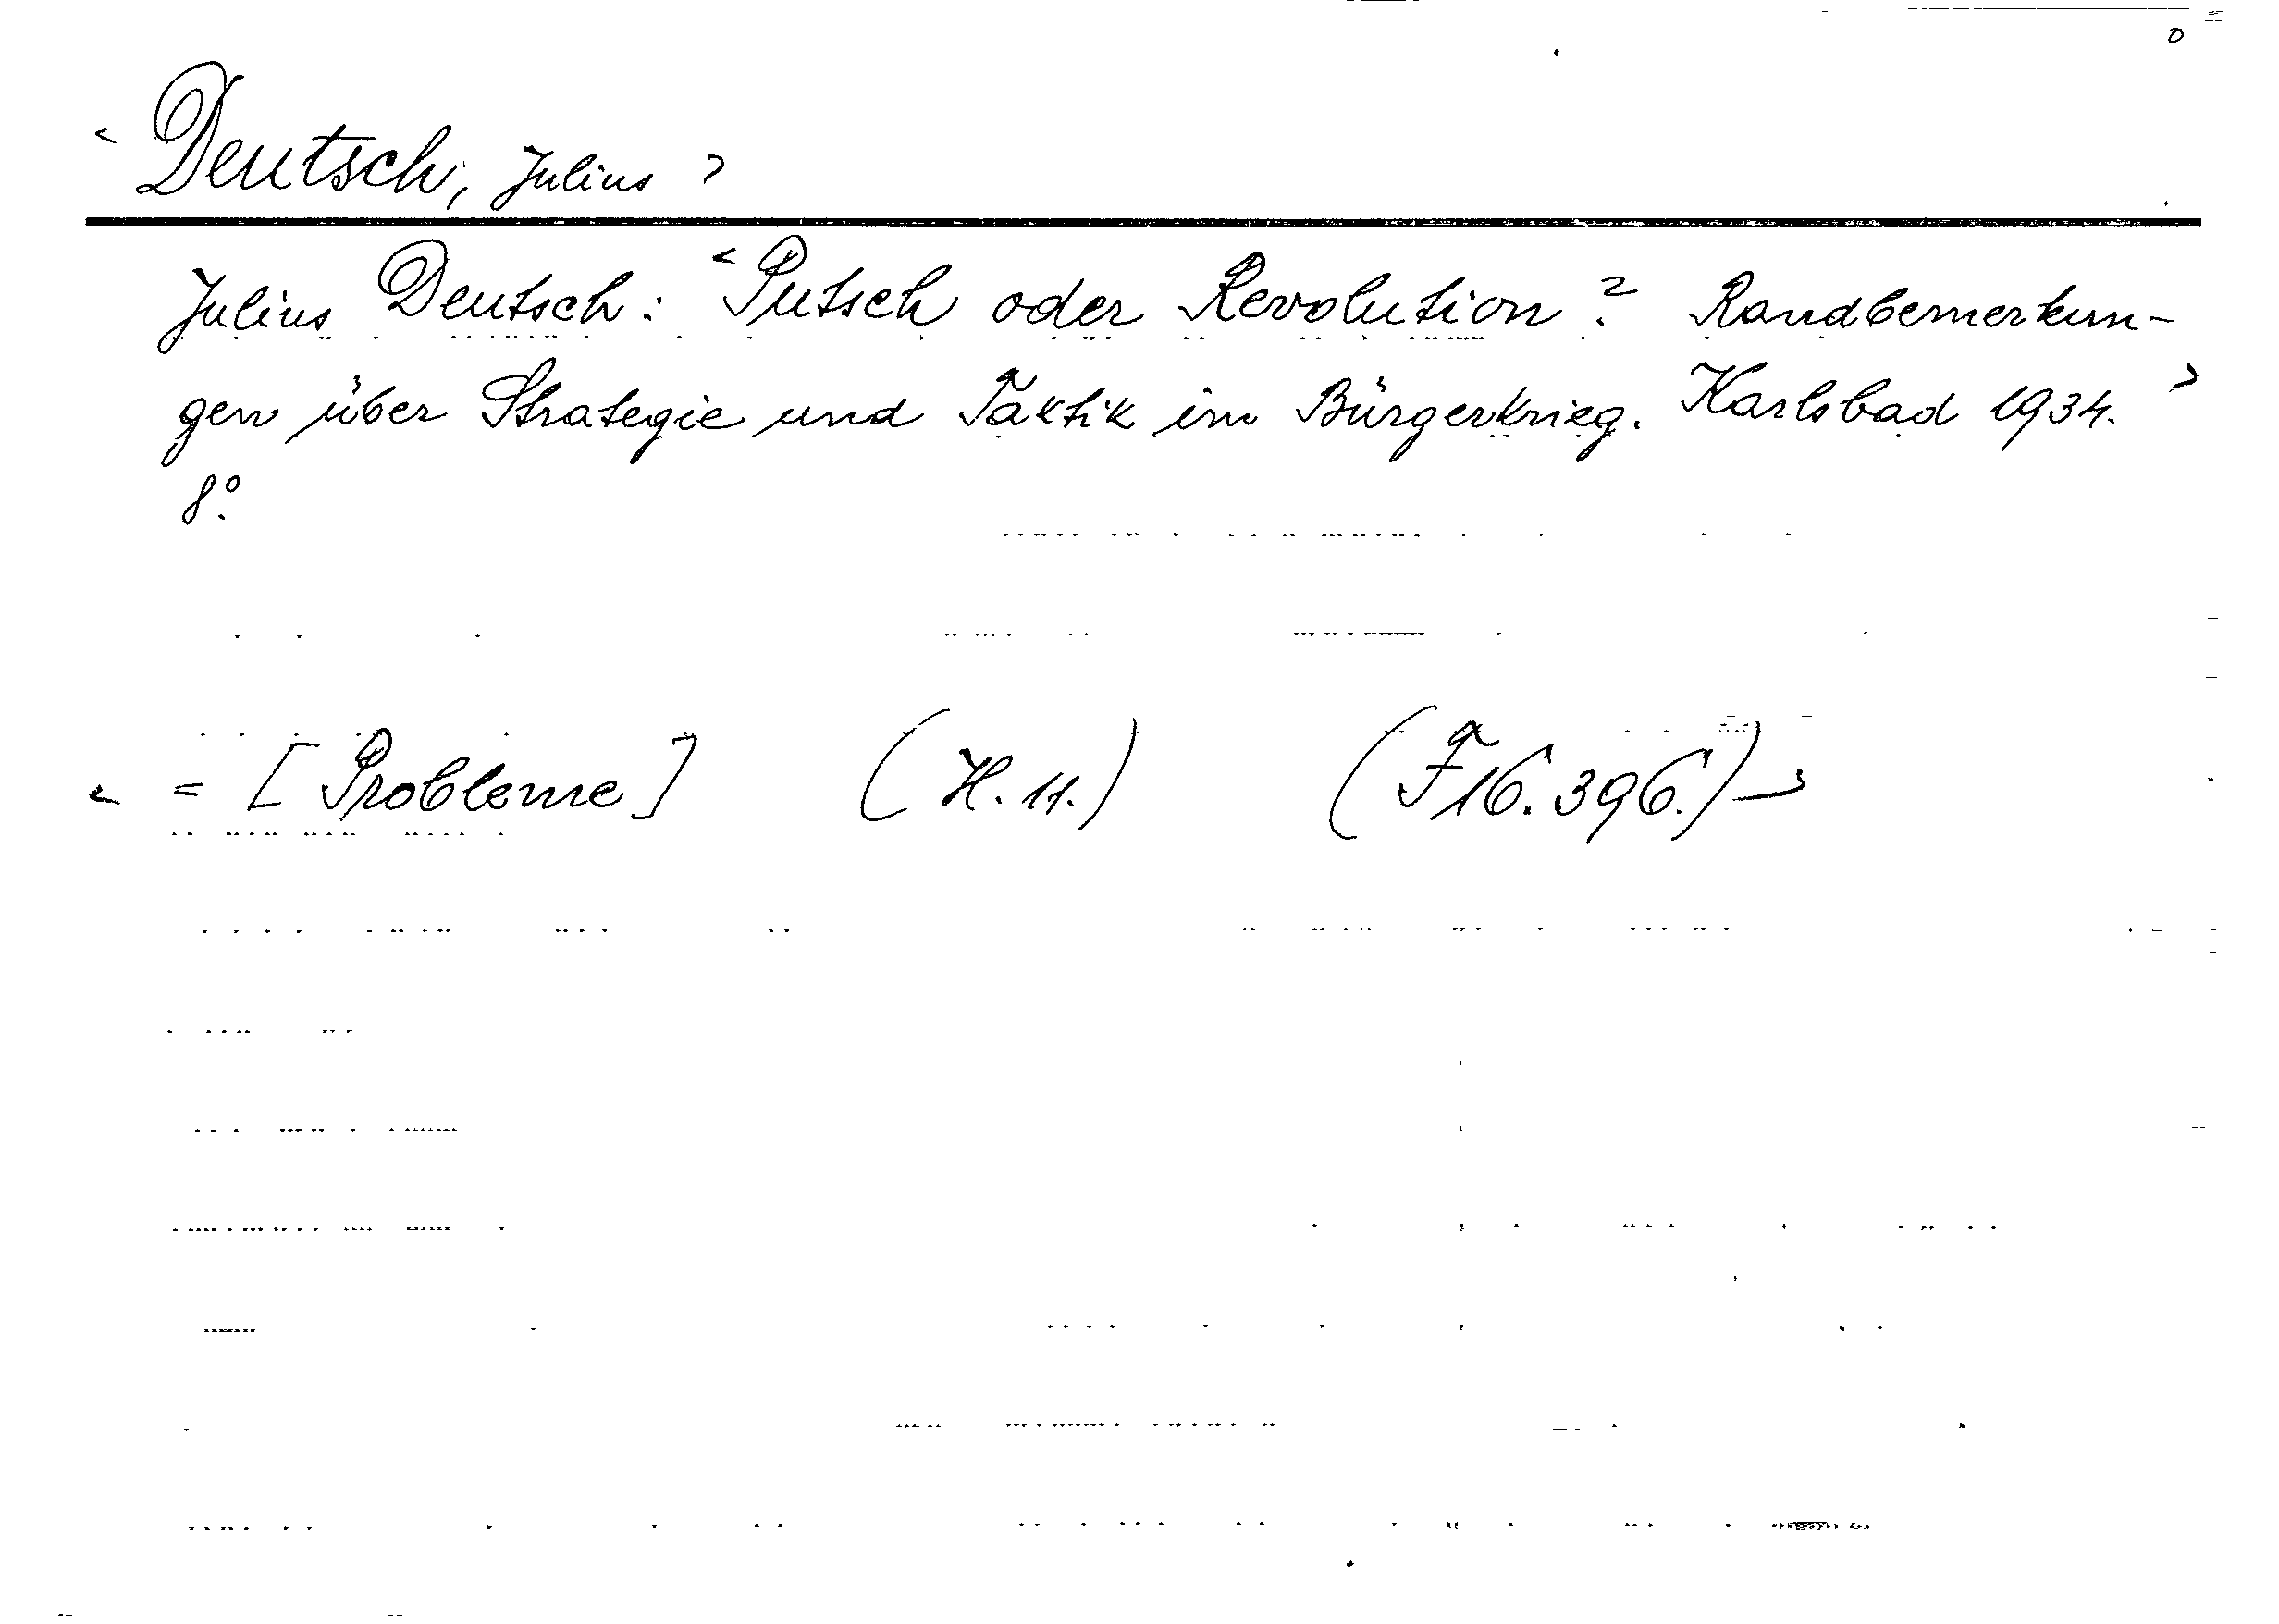 < Deutsch, Julius >
Julius Deutsch: < Putsch oder Revolution? Randbemerkun-
gen über Strategie und Taktik im Bürgerkrieg. Karlsbad 1934. >
8°.
< = [Probleme] (H. 11.) (F16.396.) >